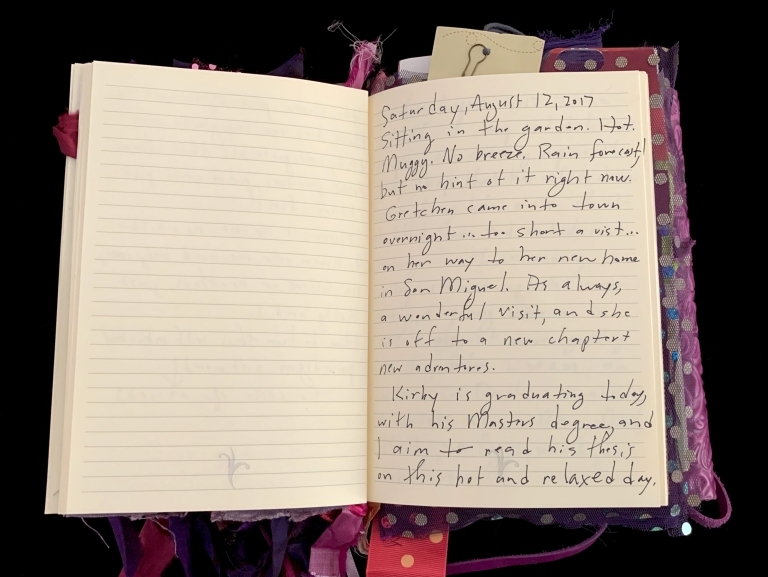 Saturday, August 12, 2017
Sitting in the garden. Hot.
Muggy. No breeze. Rain forecast,
but no hint of it right now.
Gretchen came into town
overnight... too short a vist...
on her way to her new home
in San Miguel. As always,
a wonderful visit, and she
is off to a new chapter +
new adventures.
Kirby is graduating today,
with his Masters degree, and
I aim to read his thesis
on this hot and relaxed day.